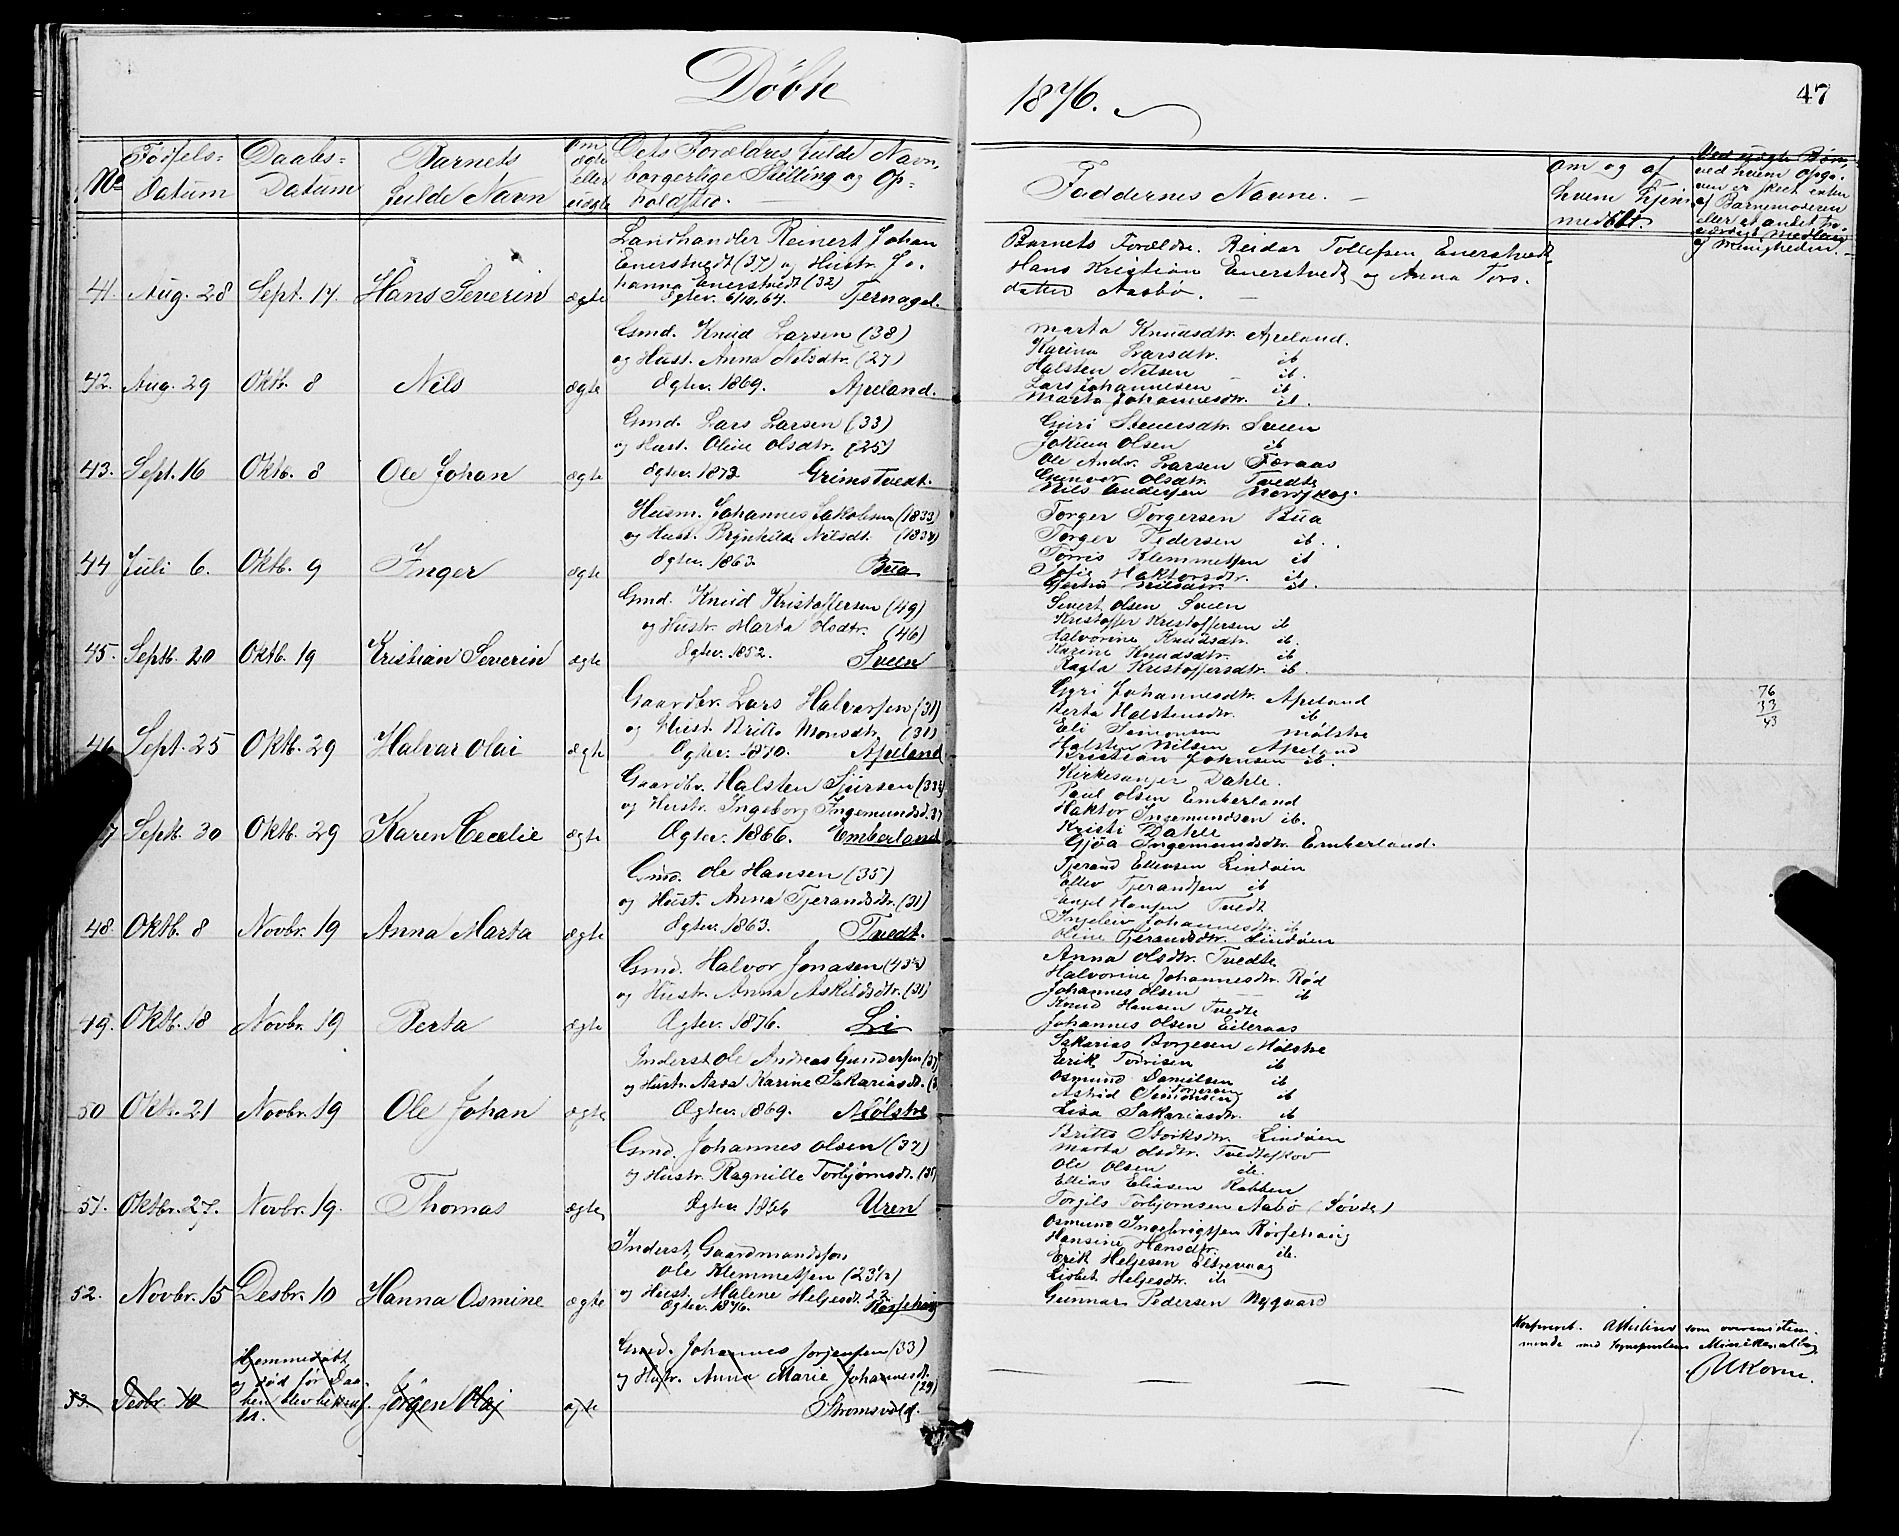 Döbte
1876.
47
No
Fødsels-
Datum
Daabs-
Datum
Barnets
fulde Navn
Om
ægte
eller
uægte
Dets Forældres fulde Navn,
borgerlige Stilling og Op-
holdsted.
Faddernes Navne.
Om og af
hvem hjem
medöbt.
ved hvem Opgi-
ven er skeet enten
af Barnemoderen
eller
af Menigheden.
41. Aug. 28 Sept. 17. Hans Severin ægte
Landhandler Reinert Johan
Enerstvedt (37) og Hustr. Jo-
hanna Enerstvedt (32)
Ægtev. 6/10, 64. Tjernagel.
Barnets Forældre. Reidar Tollefsen Enerstvedt
Hans Kristian Enerstvedt og Anna Tors-
datter Aasbö.
42. Aug. 29 Oktb. 8 Nils ægte
Gmd. Knud Larsen (38)
og Hust. Anna Nilsdtr. (27)
Ægtev. 1869. Apeland.
Marta Knudsdtr. Apeland.
Karina Larsdtr. ib
Halsten Nelsen ib.
Lars Johannesen ib
Marta Johannesdtr. ib.
43. Sept. 16 Oktb. 8 Ole Johan ægte
Gmd. Lars Larsen (33)
og Hust. Oline Olsdtr. (25)
Ægtev. 1873 Grimstvedt.
Guri Sveen
Olsen ib
Ole Andr. Larsen Færaas
Gunvor Olsdtr. Tvedte
Nils Andersen Nordskog.
44 Juli 6. Oktb. 9 Inger ægte
Husm. Johannes Jakobsen (1833)
og Hust. Brynhilde Nilsdt. (1834)
Ægtev. 1863. Bua
Torger Torgersen Bua
Torger Pedersen ib.
Torris Klemmetsen ib
Haktorsdtr. ib
Nilsdtr. ib.
45. Septb. 20 Oktb. 19 Kristian Severin ægte
Gmd. Knud Kristoffersen (49)
og Hustr. Marta Olsdtr. (46)
Ægtev. 1852. Sveen
Sivert Olsen Sveen
Kristoffer Kristoffersen ib
Halvorine Knudsdtr. ib.
Karine Knudsdtr. ib
Ragla Kristoffersdtr. ib.
46 Sept. 25 Oktb. 29 Halvar Olai ægte
Gaardbr. Lars Halvorsen (31)
og Hust. Britta Monsdtr. (31)
Ægtev. 1870. Apeland
Guri Johannesdtr. Apeland
Berta Halstensdtr. ib
Eli Simonsen Mølstre
Halsten Nilsen Apeland
Kristian Johnsen ib.
76
33
43
7 Septr. 30 Oktb. 29 Karen Cecelie ægte
Gaardbr. Halsten Sjursen (33½)
og Hustr. Ingeborg Ingemundsd. 37
Ægtev. 1866. Emberland
Kirkesanger Dahle.
Paul Olsen Emberland
Haktor Ingemundsen ib.
Kristi Dahle
Gjøa Ingemundsdtr. Emberland.
48. Oktb. 8 Novbr. 19 Anna Marta ægte
Gmd. Ole Hansen (35)
og Hust. Anna Tjerandsdtr. (31)
Ægtev. 1863. Tvedt.
Tjerand Ellevsen Lindøen
Ellev Tjerandsen ib
Engel Hansen Tvedt
Ingeleiv Johannesdtr. ib
Oline Tjerandsdtr. Lindøen
49. Oktb. 18 Novbr. 19 Berta ægte
Gmd. Halvor Jonasen (43½)
og Hustr. Anna Askildsdtr. (31)
Ægtev. 1876. Li
Anna Olsdtr. Tvedte
Halvorine Johannesdtr. Rød
Johannes Olsen ib
Knud Hansen Tvedte
Johannes Olsen Eileraas
50 Oktr. 21 Novbr. 19 Ole Johan ægte
Inderst Ole Andreas Gundersen (37
og Hustr. Aasa Karine Sakariasdt. (3
Ægtev. 1869. Mølstre
Sakarias Borgesen Mølstre
Erik Torrisen ib
Osmund Danielsen ib
Torgersen
Astrid Simonsen ib
Lisa Sakariasdtr. ib
51. Oktbr. 27. Novbr. 19. Thomas ægte
Gmd. Johannes Olsen (37)
og Hustr. Ragnille Torbjørnsdt. (35)
Ægtev. 1856 Uren
Britta Størksdtr. Lindøen
Marta Olsdtr. Tvedteskov
Ole Olsen ib.
Ellias Eliasen Rabben
Torgils Torbjørnsen Aabø (Søvde)
52. Novbr. 15 Desbr. 10 Hanna Osmine ægte
Inderst, Gaardmandssøn
Ole Klemmetsen (23½)
og Hust. Malene Heljesdt. 22.
Ægtev. 1876. Hørsehaug
Osmund Ingebrigtsen Rørsehaug
Hansine Hansdtr. ib.
Erik Heljesen Eltrevaag
Lisbet Heljesdtr. ib
Gunnar Pedersen Nygaard
53. Desbr. 10 Hjemmedøbt
og død før Daa-
ben blev bekræf-
tet. Jörgen Olaj ægte
Gmd. Johannes Jørgensen (33)
og Hustr. Anna Marie Johannesdt.
(29)
Strømsvold.
Konfereret. Attesteres som overensstem-
mende med Sognepræstens Ministerialbog